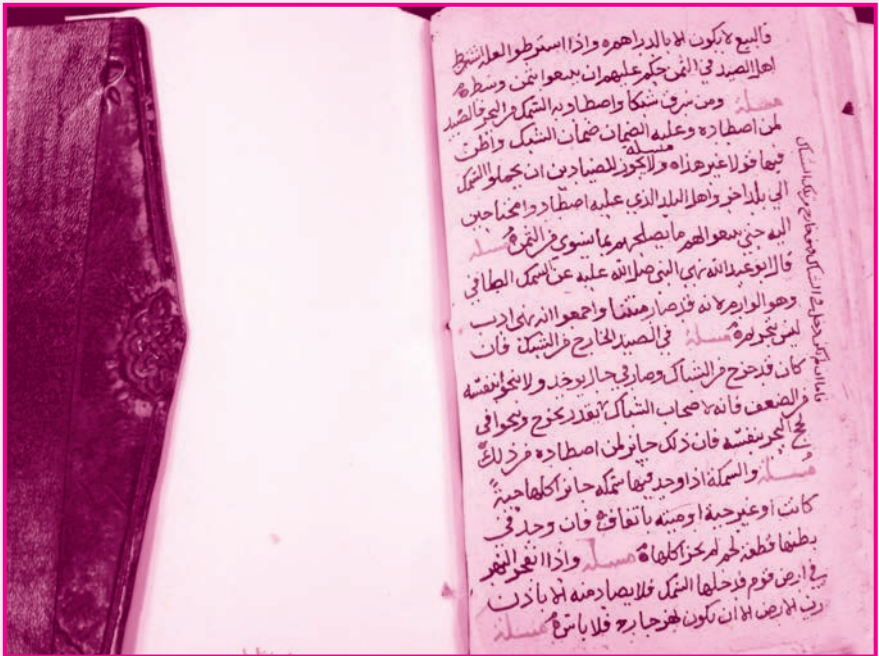 فالبيع لا يكون الا بالدراهم واذا اشترطوا الغلة
اهل الصيد في الثمن حكم عليهم ان يبيعوا بثمن وسط
مسئلة ومن سرق شبكا واصطاد به السمك من البحر فالصيد
لمن اصطاده وعليه الضمان ضمان الشبك واظن
فيها قولا غير هذا ولا يجوز للصيادين ان يحملوا السمك
مسئلة
الى بلد اخر واهل البلد الذي عليه اصطادوا محتاجين
اليه حتى يبيعوا لهم ما يصلحهم بما يسوى من الثمن مسئلة
قال ابو عبدالله نهى النبي صلى الله عليه عن السمك الطافي
وهو الوارم لانه قد صار منتنا واجمعوا انه نهي ادب
ليس بتحريم مسئلة في الصيد الخارج من الشبك فان
كان قد خرج من الشباك وصار في حال يوخذ ولا ينجو بنفسه
من الضعف فانه لاصحاب الشباك يقدر يخرج وينجو في
لجج البحر بنفسه فان ذلك جائز لمن اصطاده من ذلك
مسئلة والسمكة اذا وجد فيها سمكة جائز اكلها حية
كانت او غير حية او ميتة باتفاق فان وجد في
بطنها قطعة لحم لم يجز اكلها مسئلة واذا انفجر النهر
في ارض قوم فدخلها السمك فلا يصاد منه الا باذن
رب الارض الا ان تكون لهم جارية فلا باس مسئلة